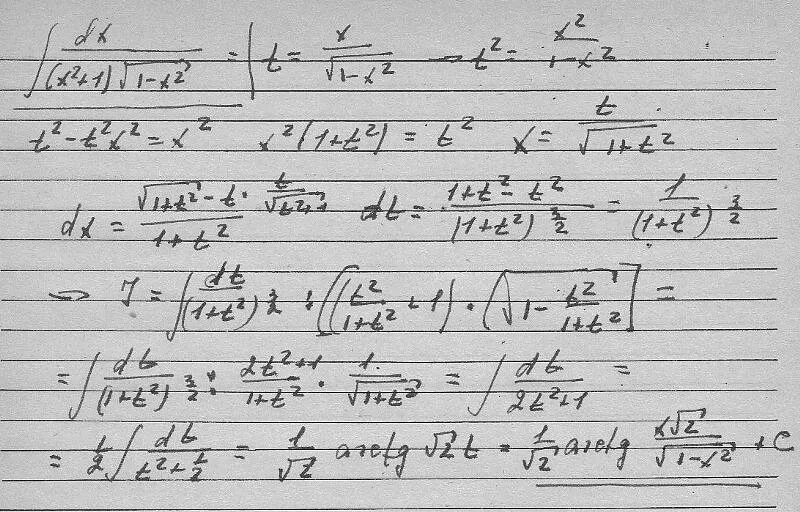 ∫ dx / ((x²+1)√(1-x²)) = | t = x/√(1-x²) → t² = x²/(1-x²)
t² - t²x² = x² x²(1+t²) = t² x = t/√(1+t²)
dx = (√(1+t²) - t · t/√(t²+1)) / (1+t²) dt = (1+t²-t²)/(1+t²)^(3/2) = 1/(1+t²)^(3/2)
→ J = ∫ dt/(1+t²)^(3/2) : [(t²/(1+t²) + 1) · (√(1 - t²/(1+t²))] =
= ∫ dt/(1+t²)^(3/2) : (2t²+1)/(1+t²) · 1/√(1+t²) = ∫ dt/(2t²+1) =
= 1/2 ∫ dt/(t²+1/2) = 1/√2 arctg √2 t = 1/√2 arctg x√2/√(1-x²) + C